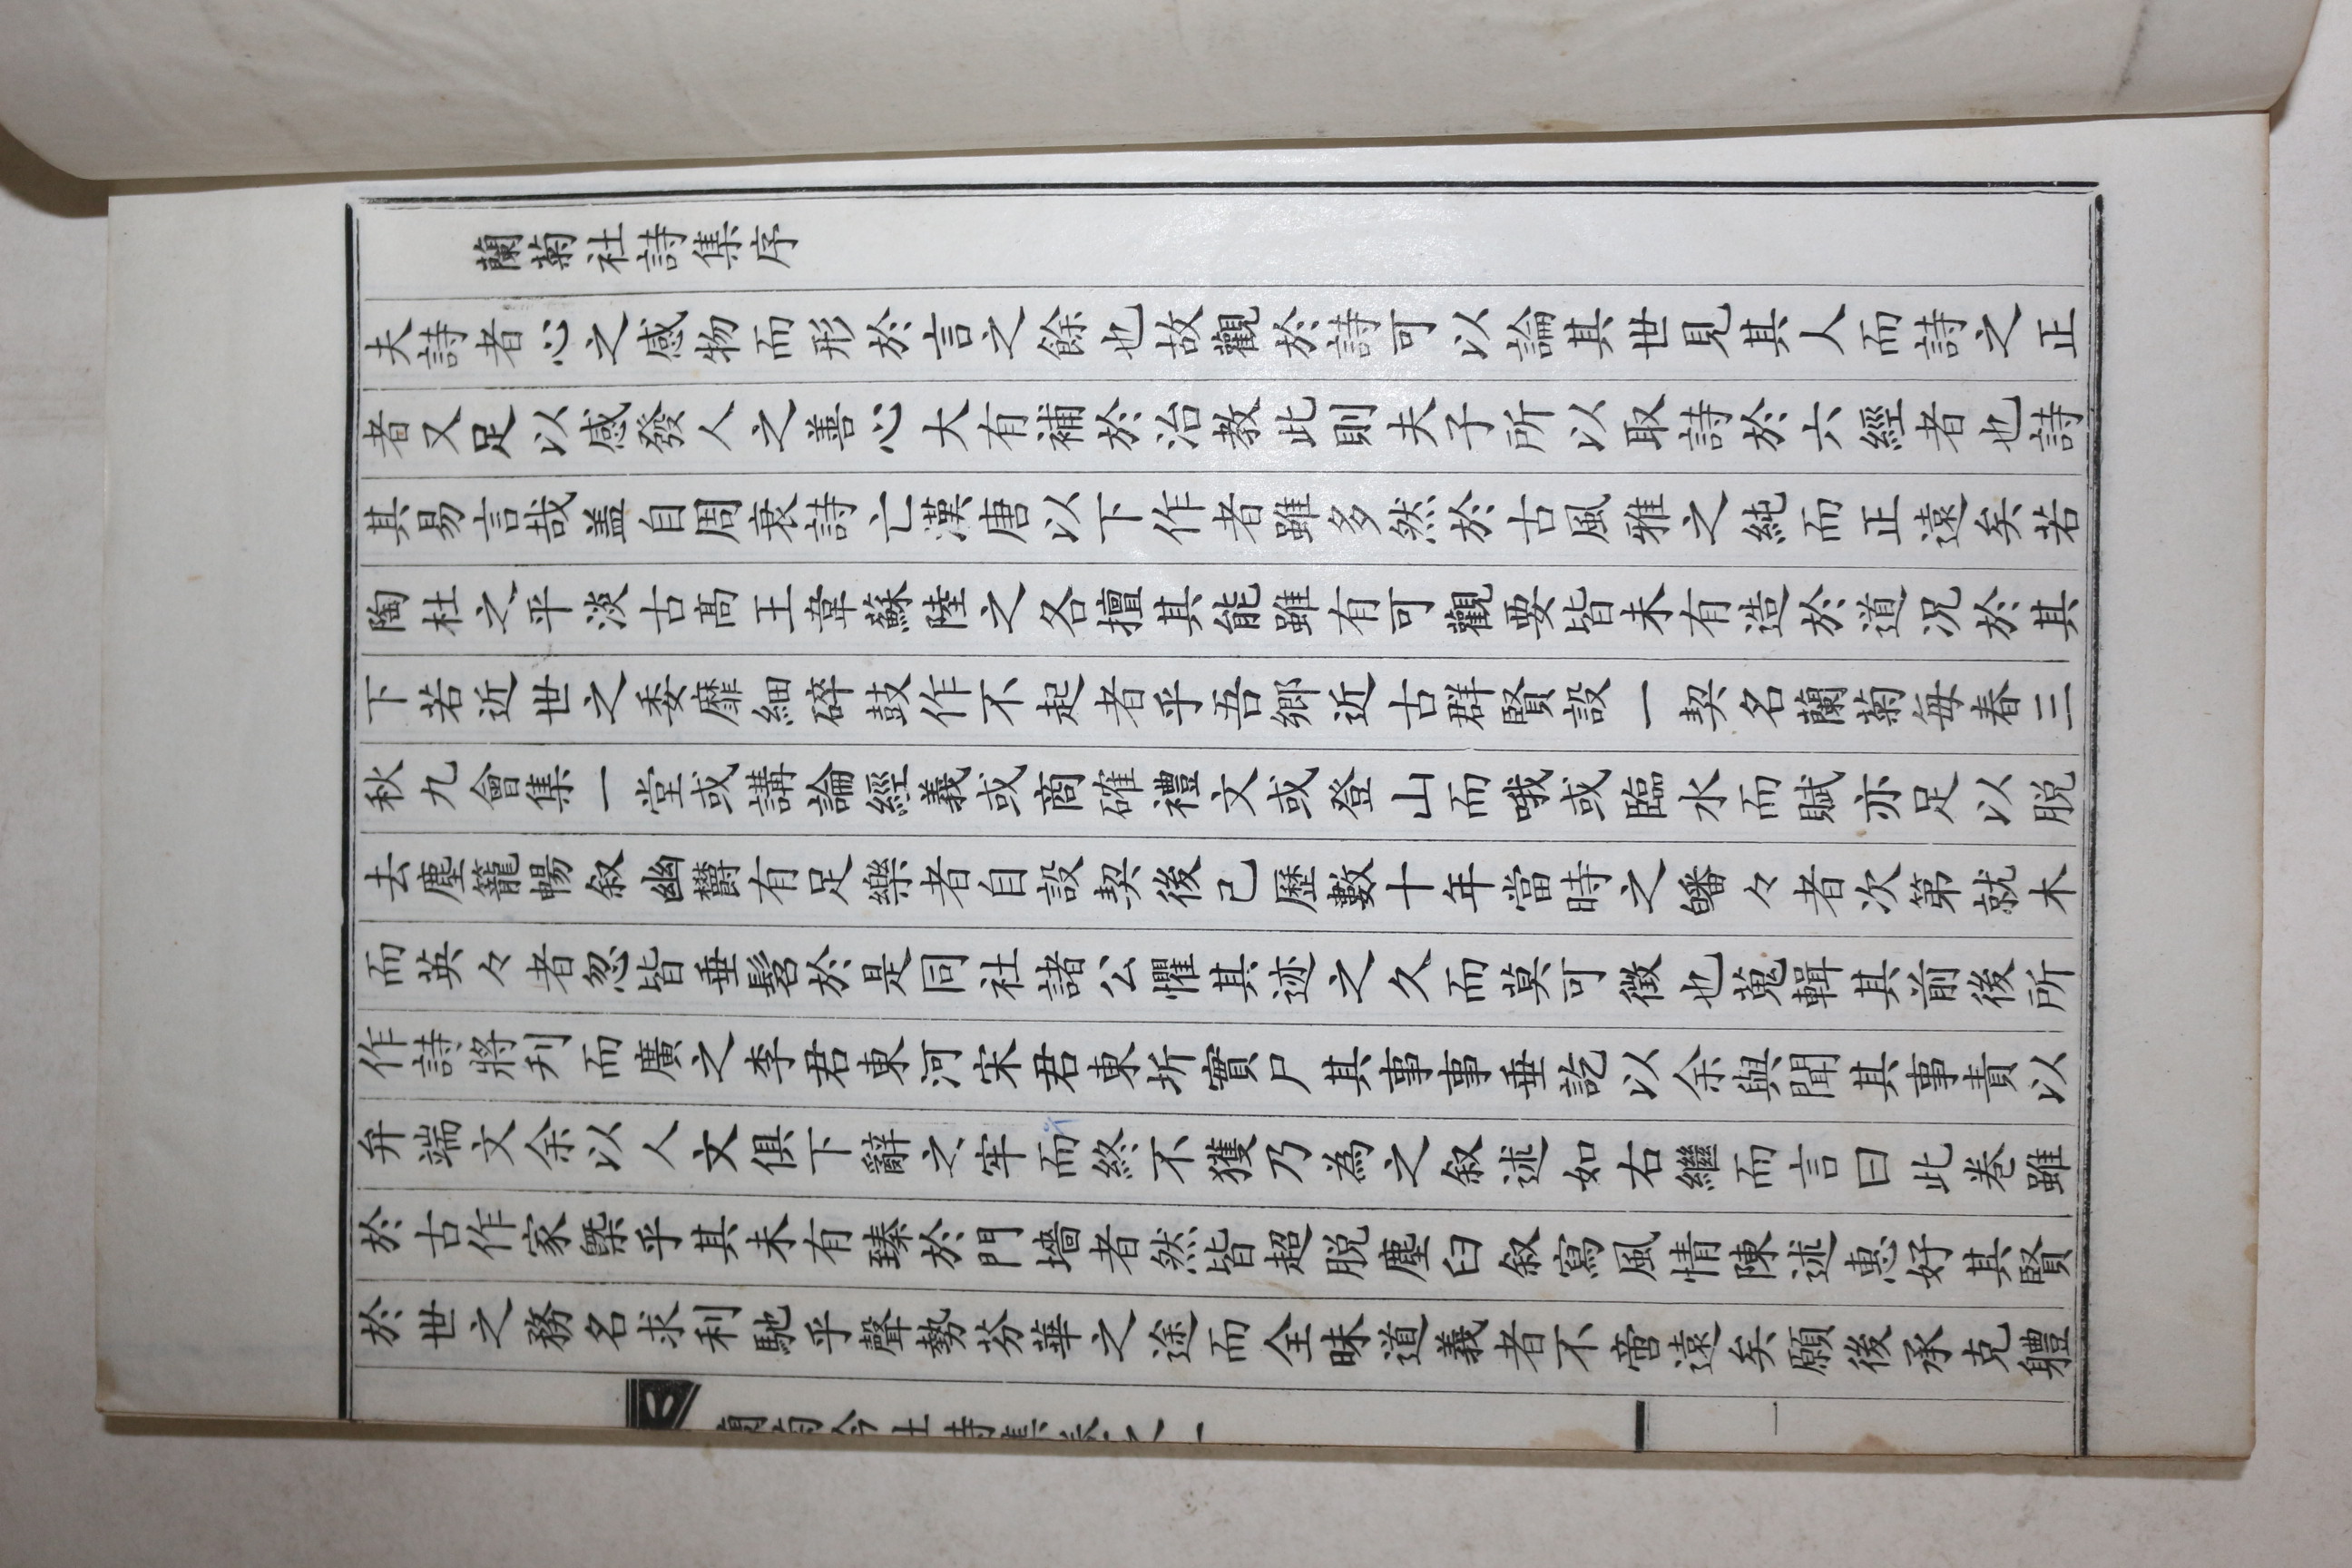 蘭菊社詩集序
夫詩者心之感物而形於言之餘也故觀於詩可以論其世見其人而詩之正
者又足以感發人之善心大有補於治教此則夫子所以取詩於六經者也詩
其易言哉盖自周衰詩亡漢唐以下作者雖多然於古風雅之純而正遠矣若
陶杜之平淡古高王韋蘇陸之各擅其能雖有可觀要皆未有造於道况於其
下若近世之委靡細碎鼓作不起者乎吾鄉近古群賢設一契名蘭菊每春三
秋九會集一堂或講論經義或商確禮文或登山而哦或臨水而賦亦足以脫
去塵籠暢叙幽欝有足樂者自設契後己歷數十年當時之皤々者次第就木
而英々者忽皆垂髫於是同社諸公懼其迹之久而莫可徵也蒐輯其前後所
作詩將刋而廣之李君東河宋君東圻實尸其事事垂訖以余與聞其事責以
弁端文余以人文俱下辭之牢而終不獲乃為之叙述如右繼而言曰此卷雖
於古作家槩乎其未有臻於門墻者然皆超脫塵臼叙寫風情陳述惠好其賢
於世之務名求利馳乎聲勢芬華之途而全昧道義者不啻遠矣願後承克軆